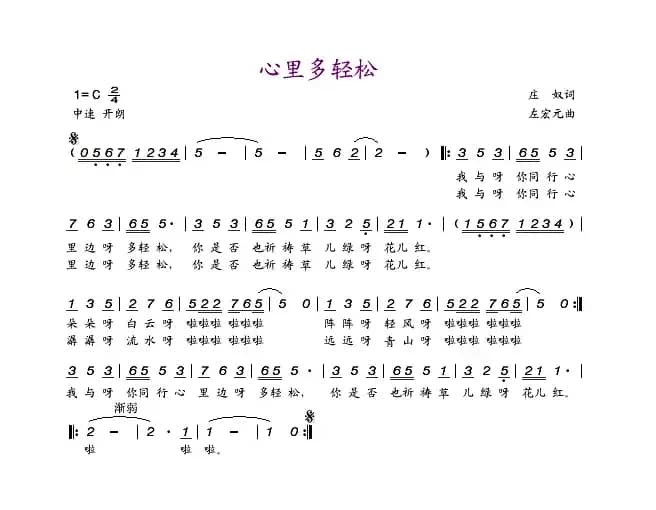 心里多轻松
1=C 2/4 庄 奴词
中速 开朗 左宏元曲
(0567 1234 | 5 - | 5 - | 5 62 | 2 - ) |: 3 5 3 | 65 5 3 |
我与呀 你同行心
我与呀 你同行心
7 6 3 | 65 5· | 3 5 3 | 65 5 5 | 3 2 5 | 21 1· | (1567 1234) |
里边呀 多轻松, 你是否 也祈祷草 儿绿呀 花儿红。
里边呀 多轻松, 你是否 也祈祷草 儿绿呀 花儿红。
1 3 5 | 2 7 6 | 522 765 | 5 0 | 1 3 5 | 2 7 6 | 522 765 | 5 0 :|
朵朵呀 白云呀 啦啦啦 啦啦啦 阵阵呀 轻风呀 啦啦啦 啦啦啦
潺潺呀 流水呀 啦啦啦 啦啦啦 远远呀 青山呀 啦啦啦 啦啦啦
3 5 3 | 65 5 3 | 7 6 3 | 65 5· | 3 5 3 | 65 5 5 | 3 2 5 | 21 1· |
我与呀 你同行心 里边呀 多轻松, 你是否 也祈祷草 儿绿呀 花儿红。
渐弱
|: 2 - | 2· 1 | 1 - | 1 0 :|
啦 啦 啦。